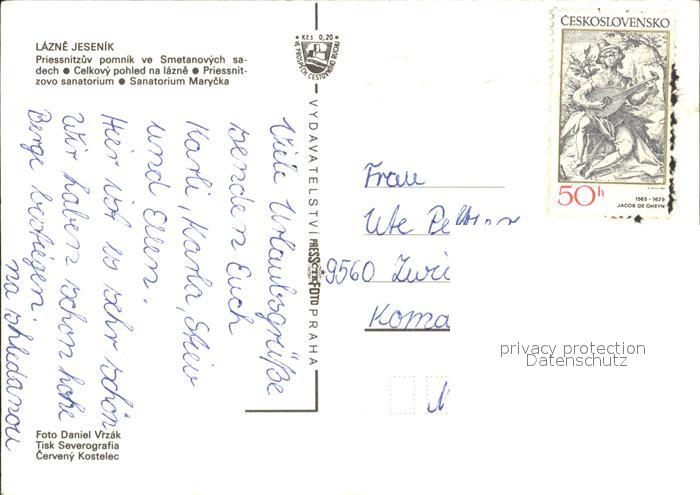 LÁZNĚ JESENÍK
Priessnitzův pomník ve Smetanových sa-
dech ● Celkový pohled na lázně ● Priessnit-
zovo sanatorium ● Sanatorium Maryčka
Kčs 0,20
VE PROSPĚCH CESTOVNÍHO RUCHU
ČESKOSLOVENSKO
50h
1565-1629
JACOB DE GHEYN
VYDAVATELSTVÍ PRESSFOTO PRAHA
Viele Urlaubsgrüße
senden Euch
Karli, Karla,
und Ellen.
Hier ist es sehr schön
Wir haben schon hohe
Berge bestiegen.
na shledanou
Frau
Ute
9560
privacy protection
Datenschutz
Foto Daniel Vrzák
Tisk Severografia
Červený Kostelec